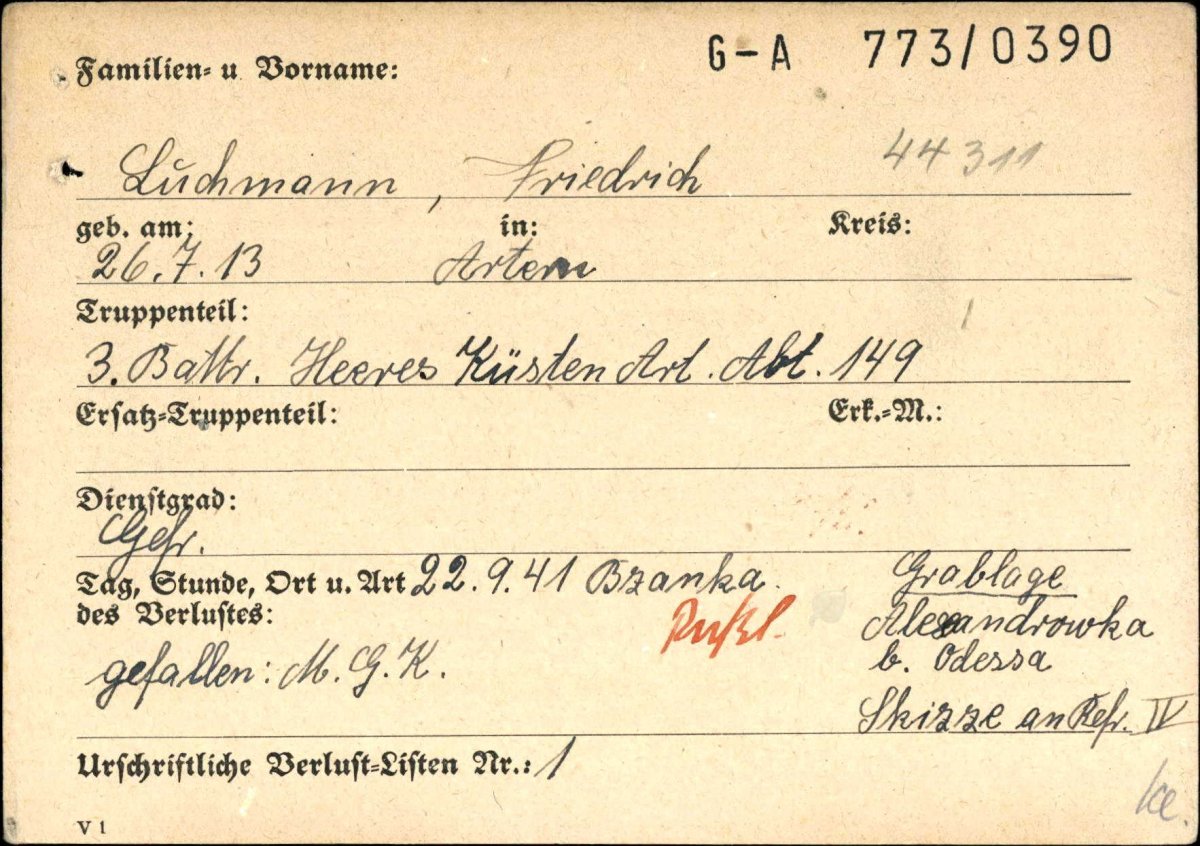 G-A 773/0390
Familien- u Vorname:
Luchmann, Friedrich 44 311
geb. am: in: Kreis:
26.7.13 Artern
Truppenteil:
3. Battr. Heeres Küsten Art. Abt. 149
Ersatz-Truppenteil: Erk.-M.:
Dienstgrad:
Gefr.
Tag, Stunde, Ort u. Art 22.9.41 Bzanka Grablage
des Verlustes: Rußl. Alexandrowka
b. Odessa
gefallen: M.G.K.
Skizze an Refr. IV
Urschriftliche Verlust-Listen Nr.: 1
V 1